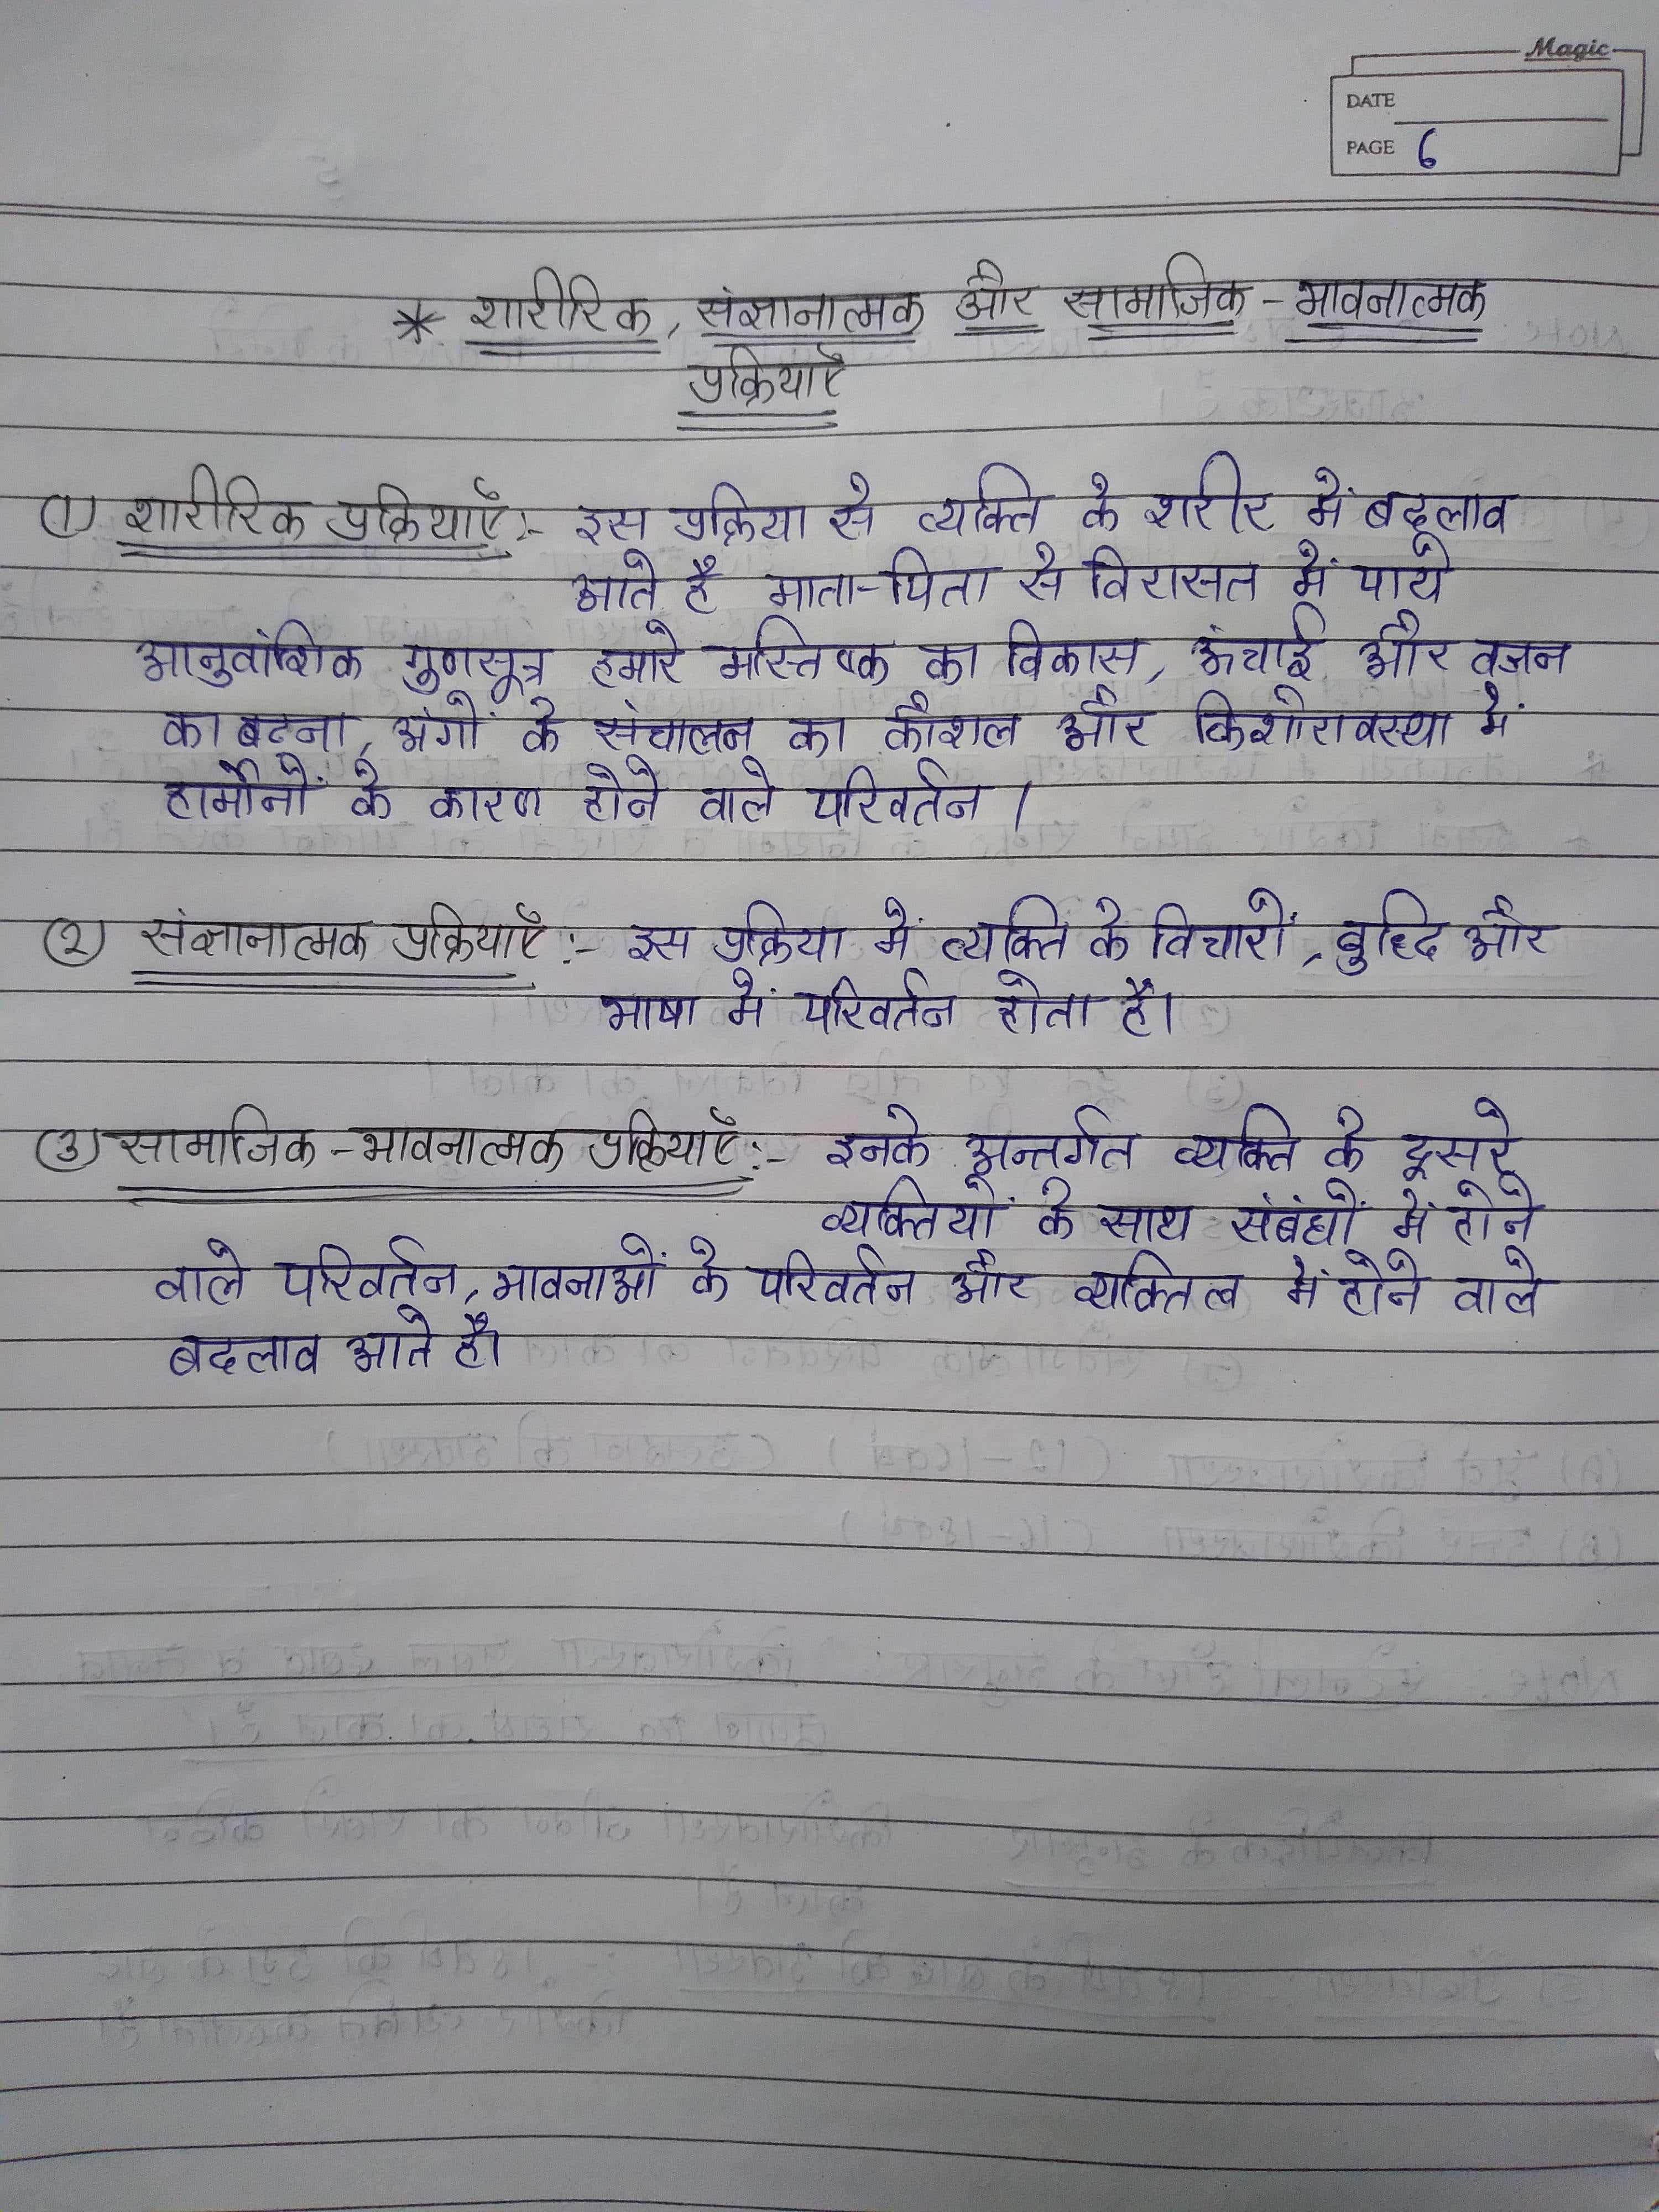 Magic
DATE
PAGE 6
* शारीरिक, संज्ञानात्मक और सामाजिक - भावनात्मक
प्रक्रियाएँ
(1) शारीरिक प्रक्रियाएँ :- इस प्रक्रिया से व्यक्ति के शरीर में बदलाव
आते है माता-पिता से विरासत में पाये
आनुवांशिक गुणसूत्र हमारे मस्तिष्क का विकास, ऊंचाई और वजन
का बढना, अंगों के संचालन का कौशल और किशोरावस्था में
हार्मोनों के कारण होने वाले परिवर्तन।
(२) संज्ञानात्मक प्रक्रियाएँ :- इस प्रक्रिया में व्यक्ति के विचारों, बुध्दि और
भाषा में परिवर्तन होता है।
(3) सामाजिक - भावनात्मक प्रक्रियाएँ :- इनके अन्तर्गत व्यक्ति के दूसरे
व्यक्तियों के साथ संबंधों में होने
वाले परिवर्तन, भावनाओं के परिवर्तन और व्यक्तित्व में होने वाले
बदलाव आते है।